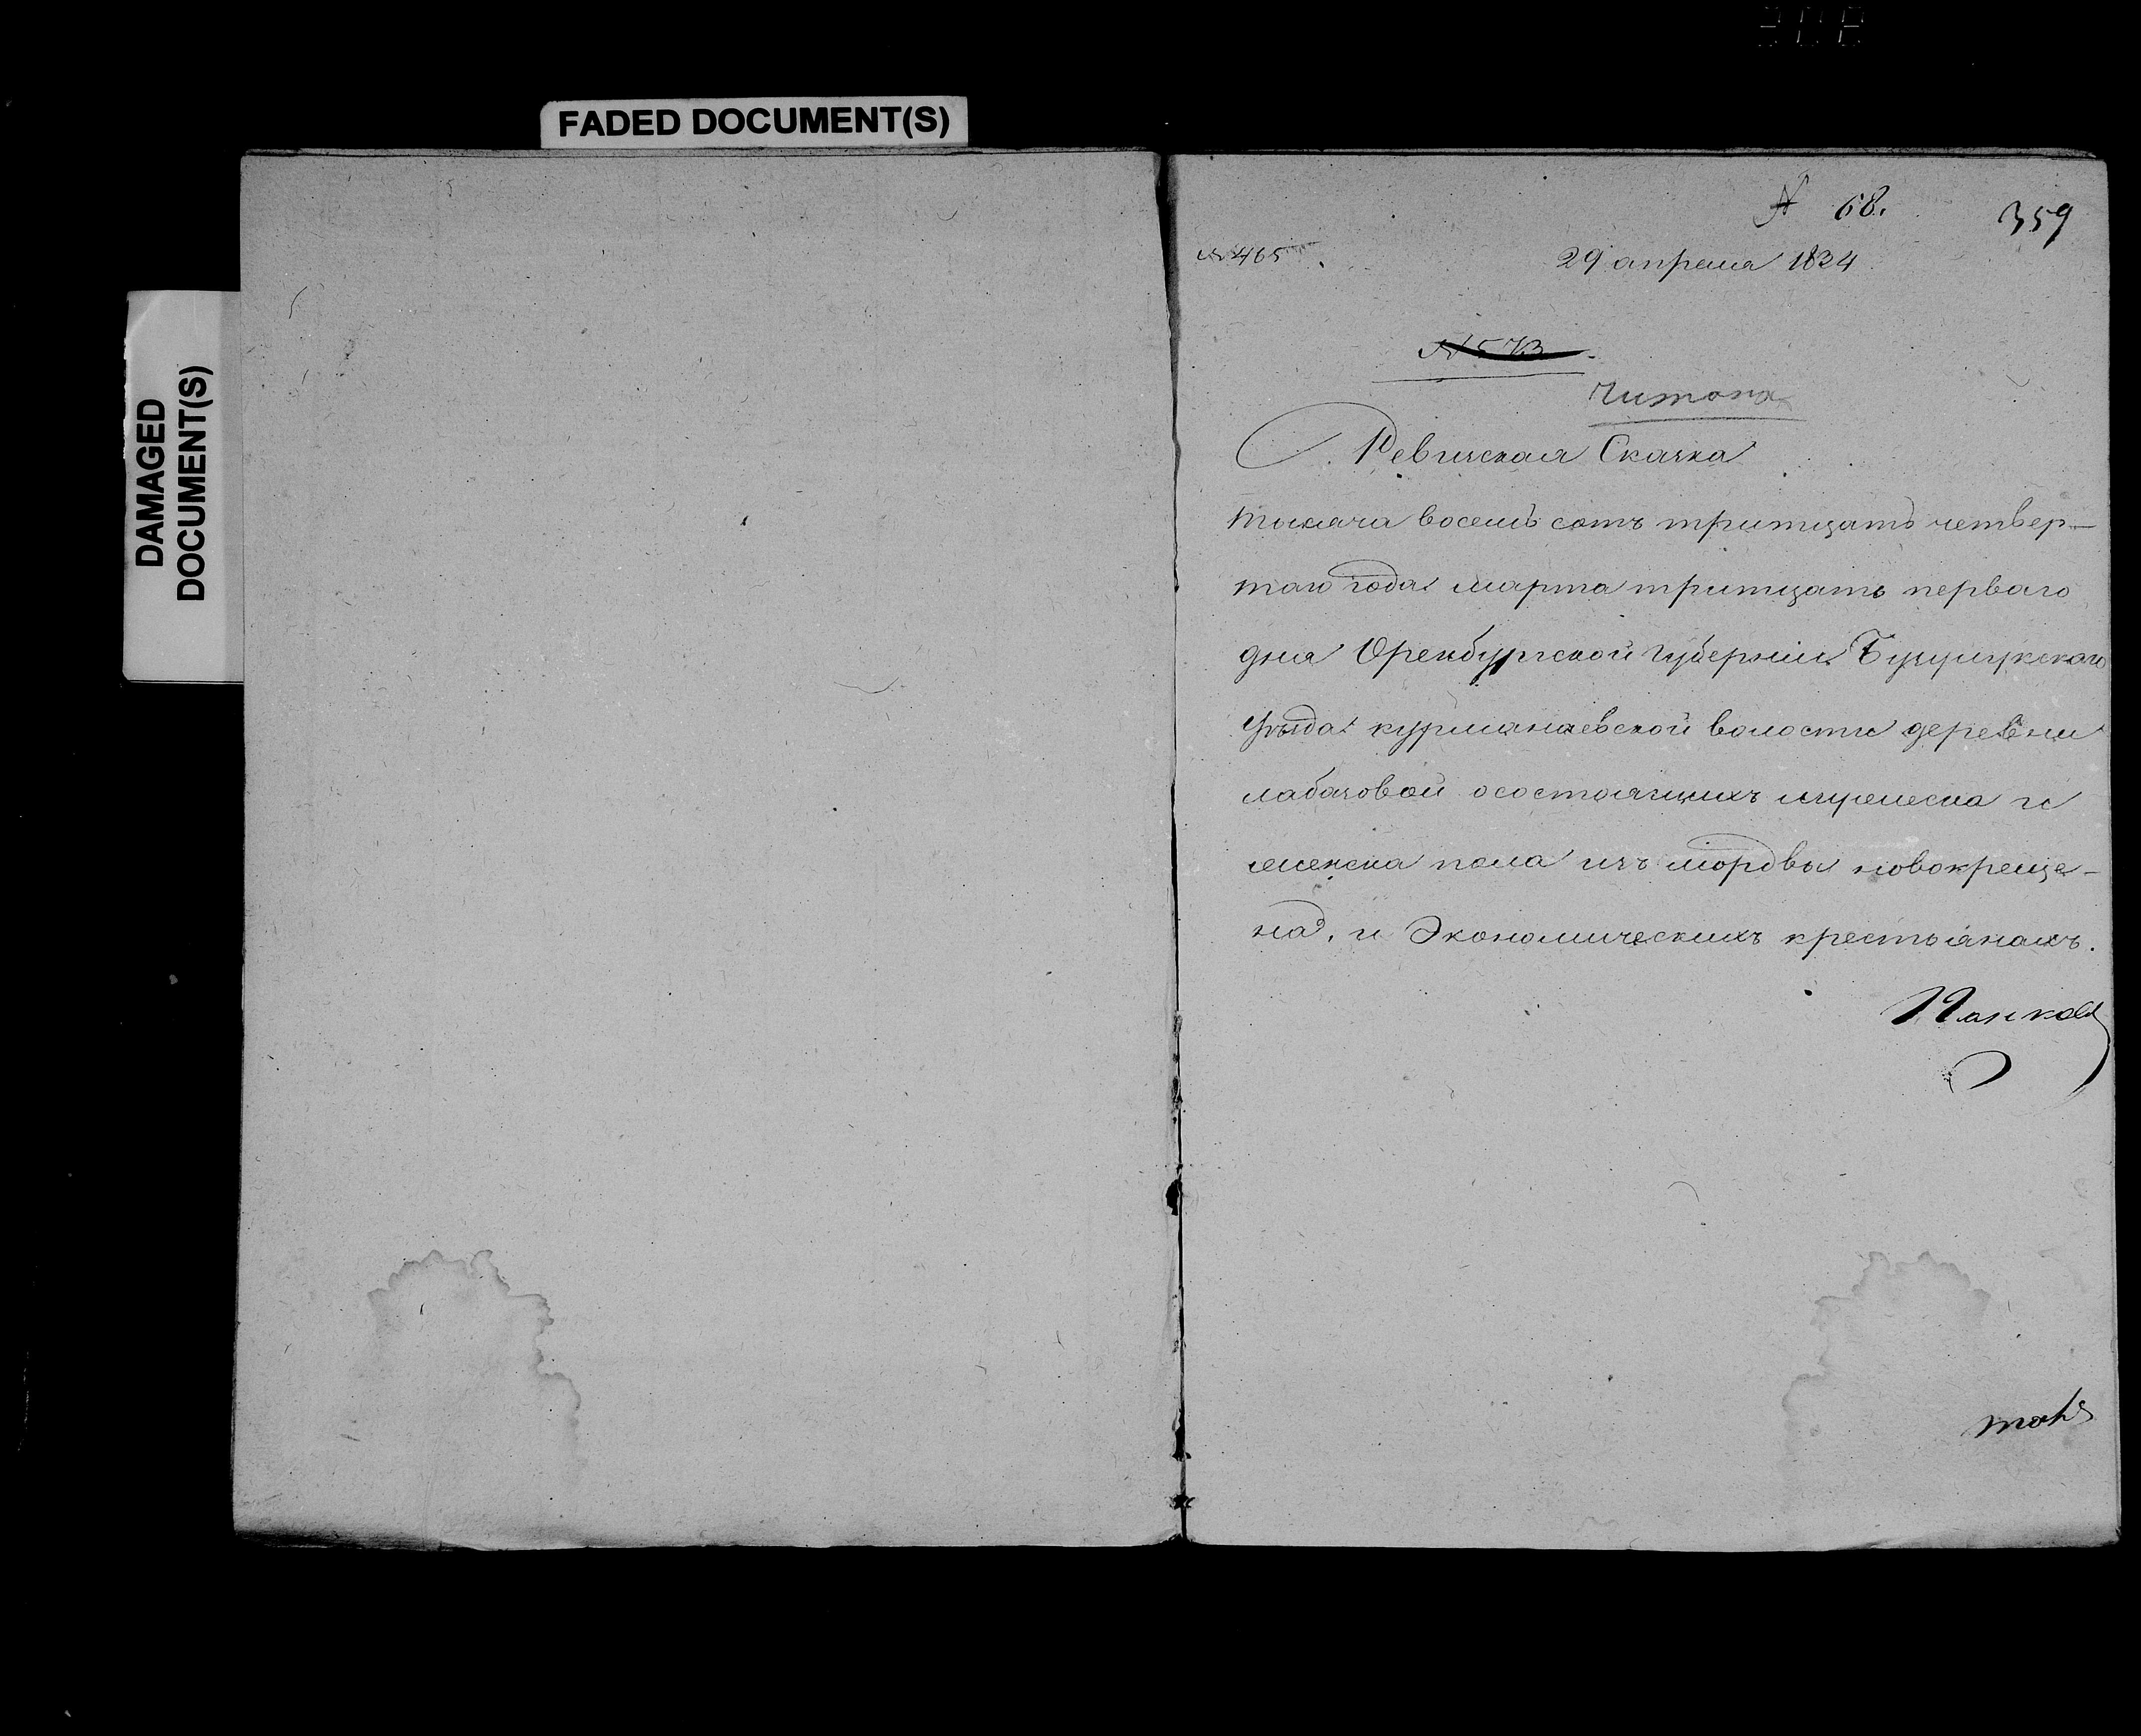 FADED DOCUMENT(S)
DAMAGED
DOCUMENT(S)
№ 68.
359
№ 465
29 апреля 1834
№ 573
Читона
Ревиская Скаска
тысяча восемь сотъ тритцать четвер-
таго года марта тритцать перваго
дня Оренбургской губернии Бузулукскаго
уѣзда курманаевской волости деревни
лабазовой о состоящихъ мужеска и
женска пола изъ мордвы новокреще-
на, и Экономическихъ крестьянахъ.
Панков